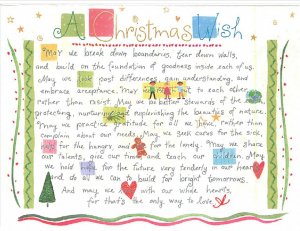 A Christmas Wish
May we break down boundaries, tear down walls,
and build on the foundation of goodness inside each of us.
May we look past differences, gain understanding, and
embrace acceptance. May we to each other,
rather than resist. May we be better stewards of the
protecting, nurturing and replenishing the beauties of nature.
May we practice gratitude for all we have, rather than
complain about our needs. May we seek cures for the sick,
help for the hungry, and for the lonely. May we share
our talents, give our time, and teach our children. May
we hold for the future very tenderly in our hearts
and do all we can to build for bright tomorrows.
And may we with our whole hearts,
for that's the only way to love